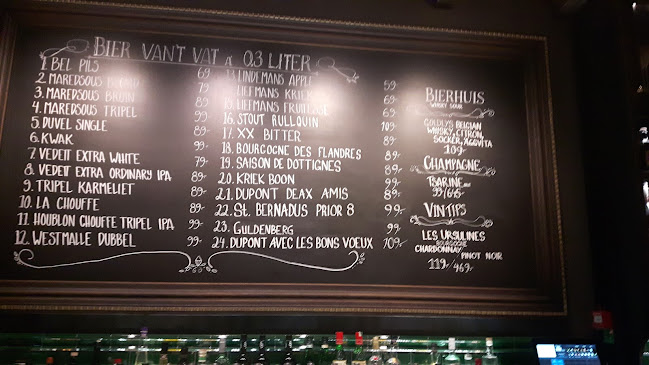 BIER VAN'T VAT á 0.3 LITER
1. BEL PILS 69-
2. MAREDSOUS BLOND 79-
3. MAREDSOUS BRUIN
4. MAREDSOUS TRIPEL
5. DUVEL SINGLE
6. KWAK
7. VEDETT EXTRA WHITE 79-
8. VEDETT EXTRA ORDINARY IPA 89-
9. TRIPEL KARMELIET
10. LA CHOUFFE
11. HOUBLON CHOUFFE TRIPEL IPA 99-
12. WESTMALLE DUBBEL 99-
13. LINDEMANS APPLE 59-
14. LIEFMANS KRIEK 69-
15. LIEFMANS FRUITESSE 69-
16. STOUT RULLQUIN 109-
17. XX BITTER 89-
18. BOURGOGNE DES FLANDRES 89-
19. SAISON DE DOTTIGNES 89-
20. KRIEK BOON 99-
21. DUPONT DEAX AMIS 89-
22. St. BERNADUS PRIOR 8 99-
23. GULDENBERG 99-
24. DUPONT AVEC LES BONS VOEUX 109-
BIERHUIS
WHISKY SOUR
GOLDLYS BELGIAN
WHISKY, CITRON,
SOCKER, ÄGGVITA
109-
CHAMPAGNE
TSARINE
99/645-
VINTIPS
LES URSULINES
BOURGOGNE
CHARDONNAY/PINOT NOIR
119/469-